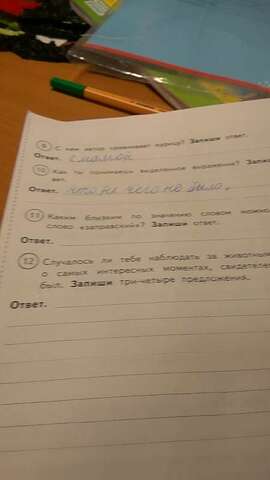 9 С кем автор сравнивает курицу? Запиши ответ.
Ответ. с мамой
10 Как ты понимаешь выделенное выражение? Запи
вет.
Ответ. что не чего не было.
11 Каким близким по значению словом можно
слово «заправский»? Запиши ответ.
Ответ.
12 Случалось ли тебе наблюдать за животным
о самых интересных моментах, свидетеле
был. Запиши три-четыре предложения.
Ответ.